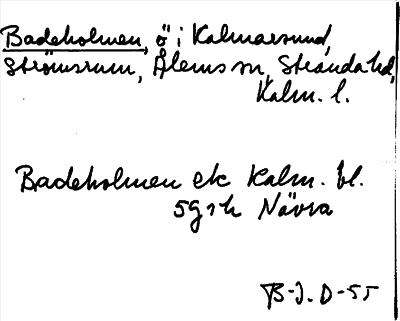 Badeholmen, ö i Kalmarsund,
Strömsrum, Ålems sn, Stranda hd,
Kalm. l.
Badeholmen ek Kalm. bl.
5G sh Nävra
B-J. D-55